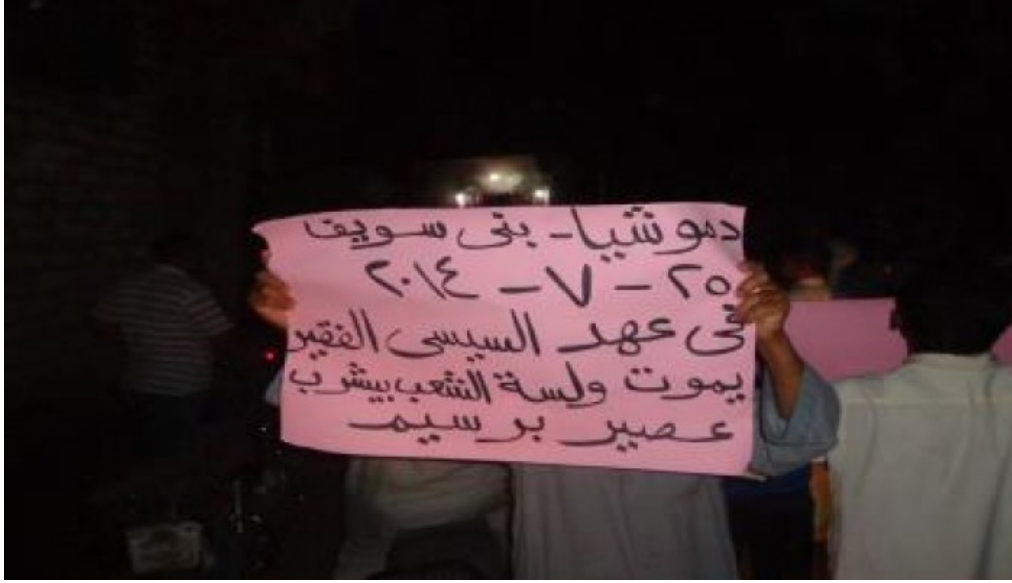 دموشيا - بنى سويف
٢٥ - ٧ - ٢٠١٤
فى عهد السيسى الفقير
يموت ولسة الشعب بيشرب
عصير برسيم